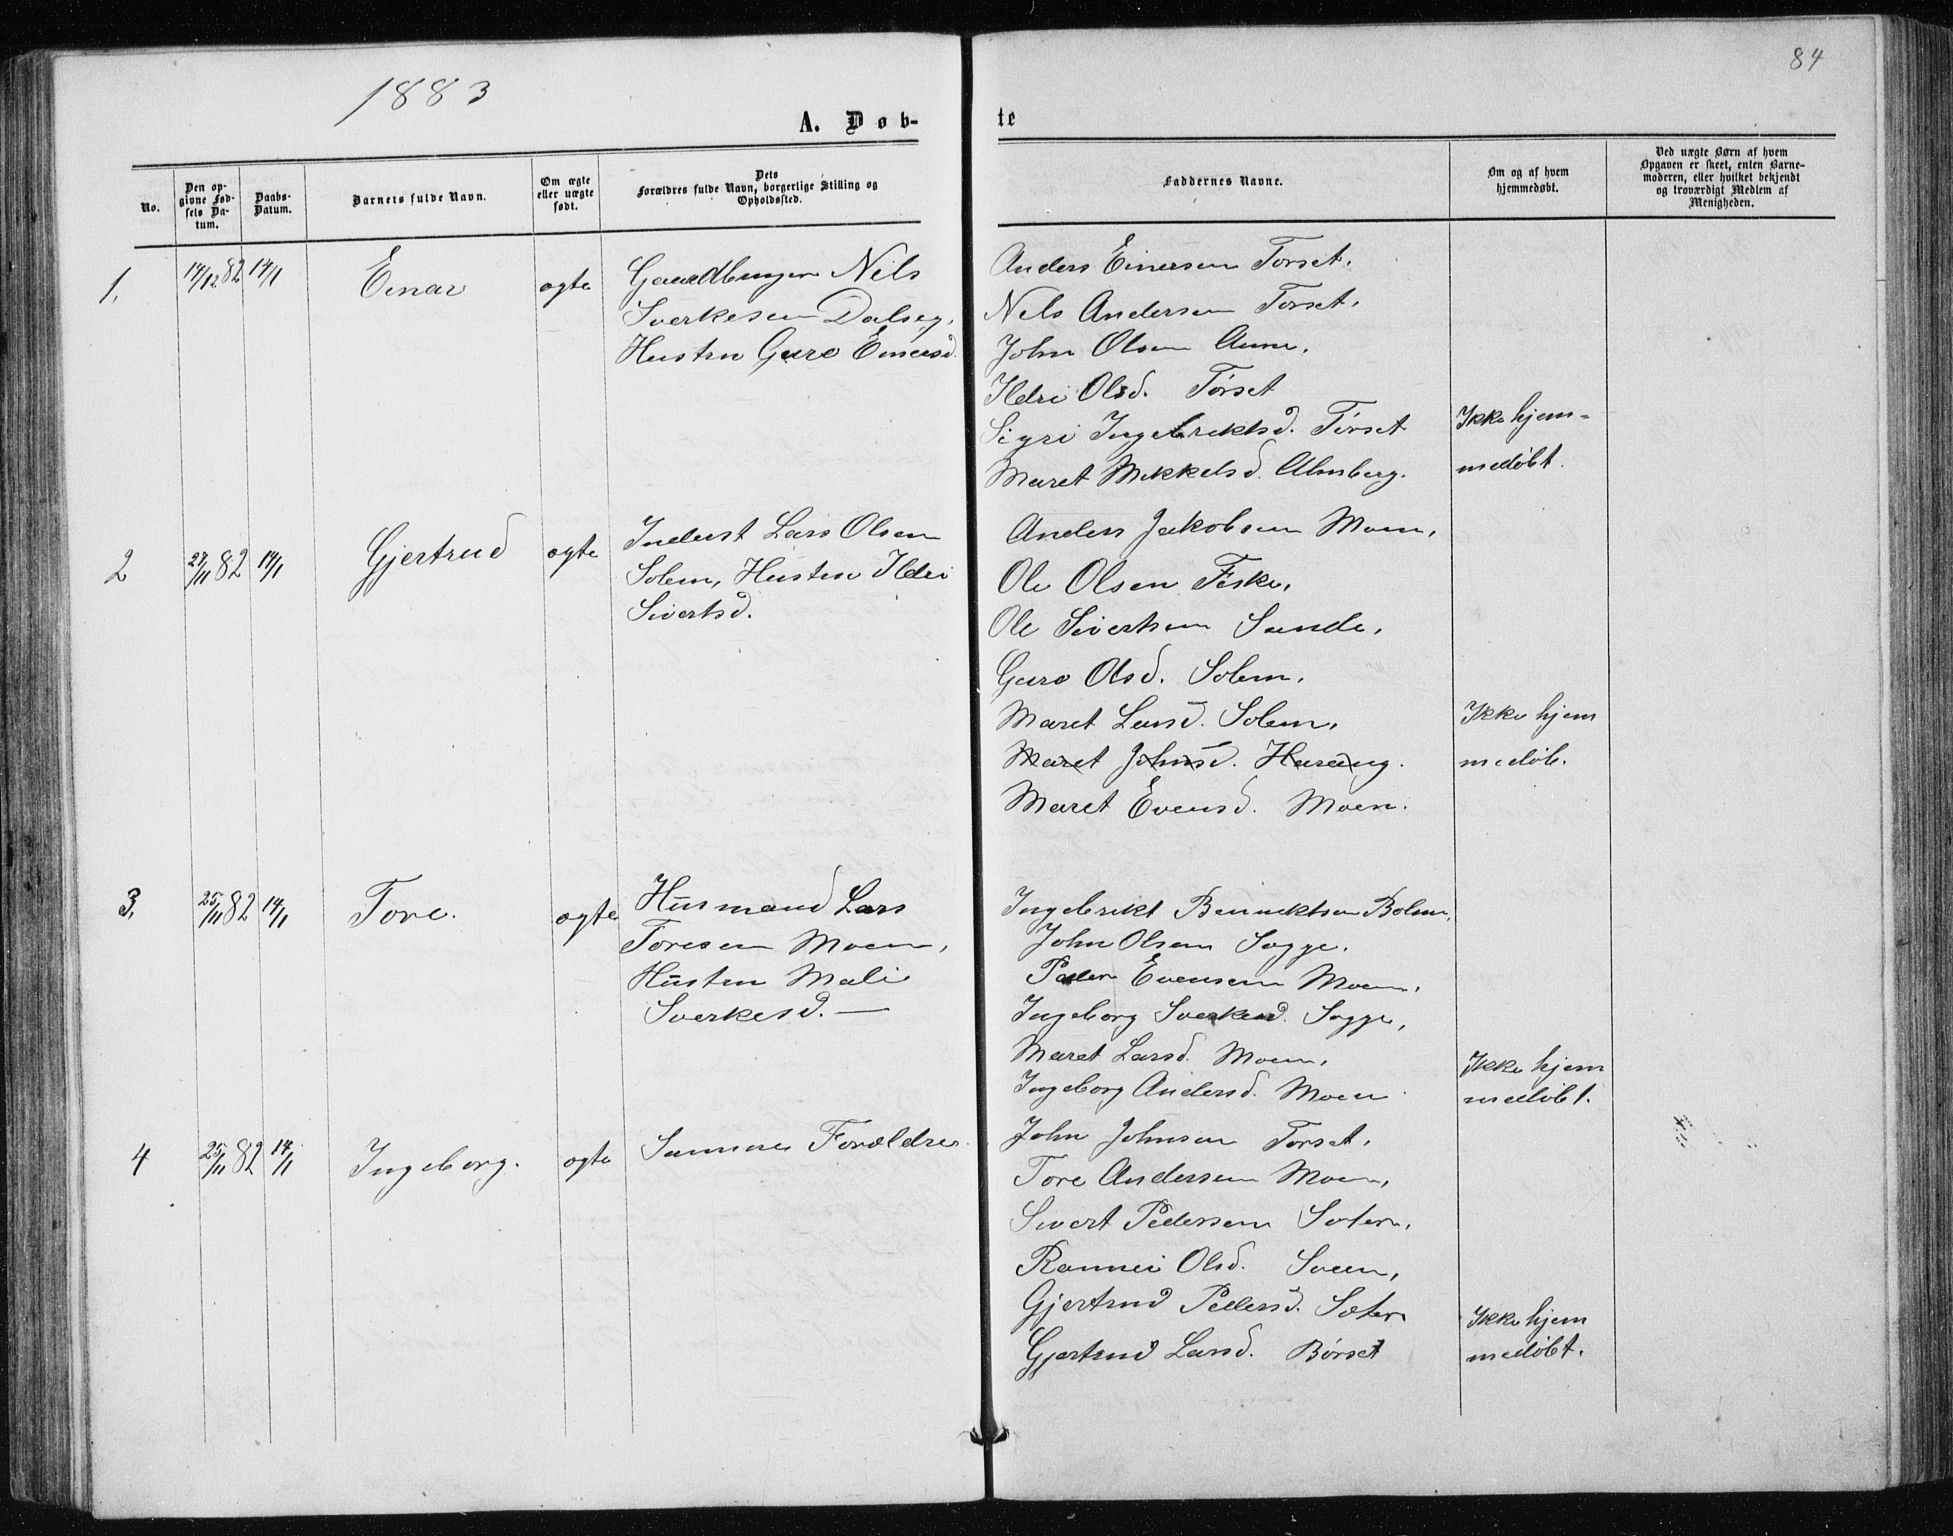 1883
84
A. Døb-
te
No.
Den op-
givne Fød-
sels Da-
tum.
Daabs-
Datum.
Barnets fulde Navn.
Om ægte
eller uægte
født.
Dets
Forældres fulde Navn, borgerlige Stilling og
Opholdssted.
Faddernes Navne.
Om og af hvem
hjemmedøbt.
Ved uægte Børn af hvem
Opgaven er skeet, enten Barne-
moderen, eller hvilket bekjendt
og troværdigt Medlem af
Menigheden.
1. 14/12 82 14/1 Einar ægte
Gaardbruger Nils
Sverkesen Dalseg,
Hustru Guro Einersd.
Anders Einersen Torset.
Nels Andersen Torset.
John Olsen Aune.
Ildri Olsd. Tørset
Sigri Ingebriktsd. Tørset
Maret Mikkelsd. Almberg.
Ikke hjem-
medøbt.
2 27/11 82 14/1 Gjertrud ægte
Inderst Lars Olsen
Solem, Hustru Ildri
Sivertsd.
Anders Jakobsen Moen,
Ole Olsen Feske,
Ole Sivertsen Sande,
Guro Olsd. Solem,
Maret Larsd. Solem,
Maret Johnsd. Haraug.
Maret Evensd. Moen.
Ikke hjem
medøb.
3. 25/11 82 14/1 Tore. ægte
Husmand Lars
Toresen Moen,
Hustru Mali
Sverkesd. —
Ingebrikt Benniktsen Bolm,
John Olsen Sogge.
Peder Evensen Moen,
Ingeborg Sverkesd. Sogge,
Maret Larsd. Moen,
Ingeborg Andersd. Moen
Ikke hjem
medøbt.
4 25/11 82 14/1 Ingeborg. ægte
Samme Forældre.
John Johnsen Torset.
Tore Andersen Moen,
Sivert Pedersen Sæter,
Rannei Olsd. Sveen,
Gjertrud Pedersd. Sæter
Gjertrud Larsd. Børset
Ikke hjem
medøbt.